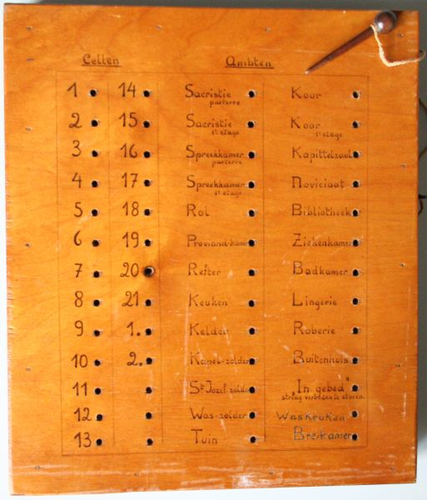 Cellen Ambten
1 14 Sacristie Koor
parterre
2 15 Sacristie Koor
1e etage 1e etage
3 16 Spreekkamer Kapittelzaal
parterre
4 17 Spreekkamer Noviciaat
1e etage
5 18 Rol Bibliotheek
6 19 Proviand-kamer Ziekenkamer
7 20 Refter Badkamer
8 21 Keuken Lingerie
9 1. Kelder Roberie
10 2. Kapel-zolder Buitenhuis
11 St Jozef-zolder In gebed
streng verboden te storen.
12 Was-zolder Waskeuken
13 Tuin Breikamer